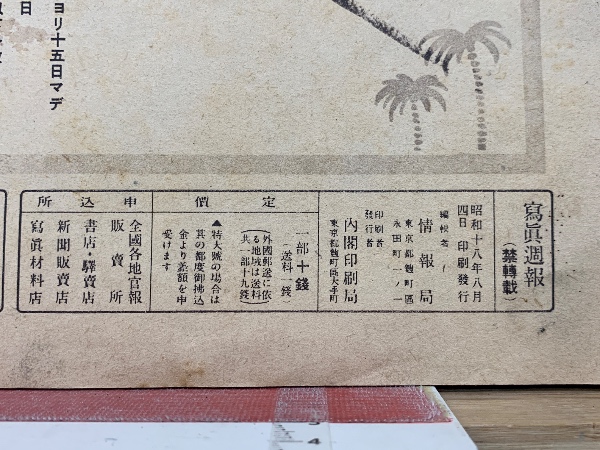 ヨリ十五日マデ
日
寫眞週報
(禁轉載)
昭和十八年八月
四日 印刷發行
編輯者
情報局
東京都麴町區
永田町一ノ一
印刷者
發行者
內閣印刷局
東京都麴町區大手町
定價
一部十錢
(送料一錢)
外國郵送に依
る地域は送料
共一部十九錢
▲特大號の場合は
其の都度御拂込
金より差額を申
受けます
申込所
全國各地官報
販賣所
書店・驛賣店
新聞販賣店
寫眞材料店